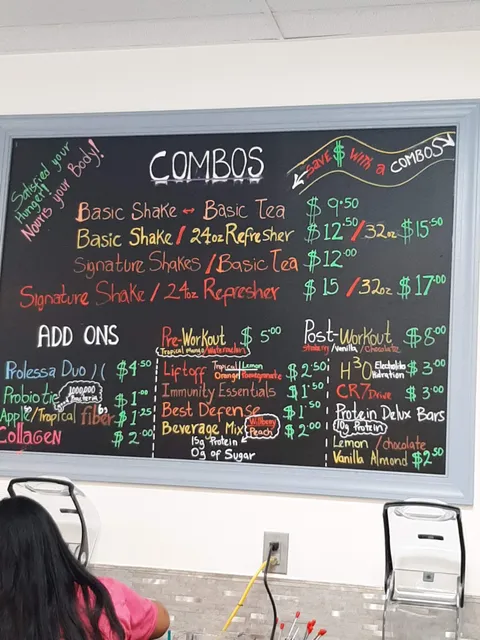 Satisfied your
Hunger!
Nouris your Body!
COMBOS
SAVE $ WITH a COMBOS
Basic Shake - Basic Tea $ 9.50
Basic Shake / 24oz Refresher $12.50 / 32oz $15.50
Signature Shakes / Basic Tea $12.00
Signature Shake / 24oz Refresher $15 / 32oz $17.00
ADD ONS
Prolessa Duo $4.50
Probiotic 1000,000 Bacteria $1.00
Apple/Tropical fiber $1.25
Collagen $2.00
Pre-Workout $5.00
Tropical Mango/Watermelon
Liftoff Tropical/Lemon $2.50
Orange Pomegranate
Immunity Essentials $1.50
Best Defense $1.50
Beverage Mix Wildberry Peach $2.00
15g Protein
0g of Sugar
Post-Workout $8.00
Strawberry/Vanilla/Chocolate
H3O Electrolite Hidration $3.00
CR7 Drive $3.00
Protein Delux Bars
10g Protein
Lemon /chocolate
Vanilla Almond $2.50